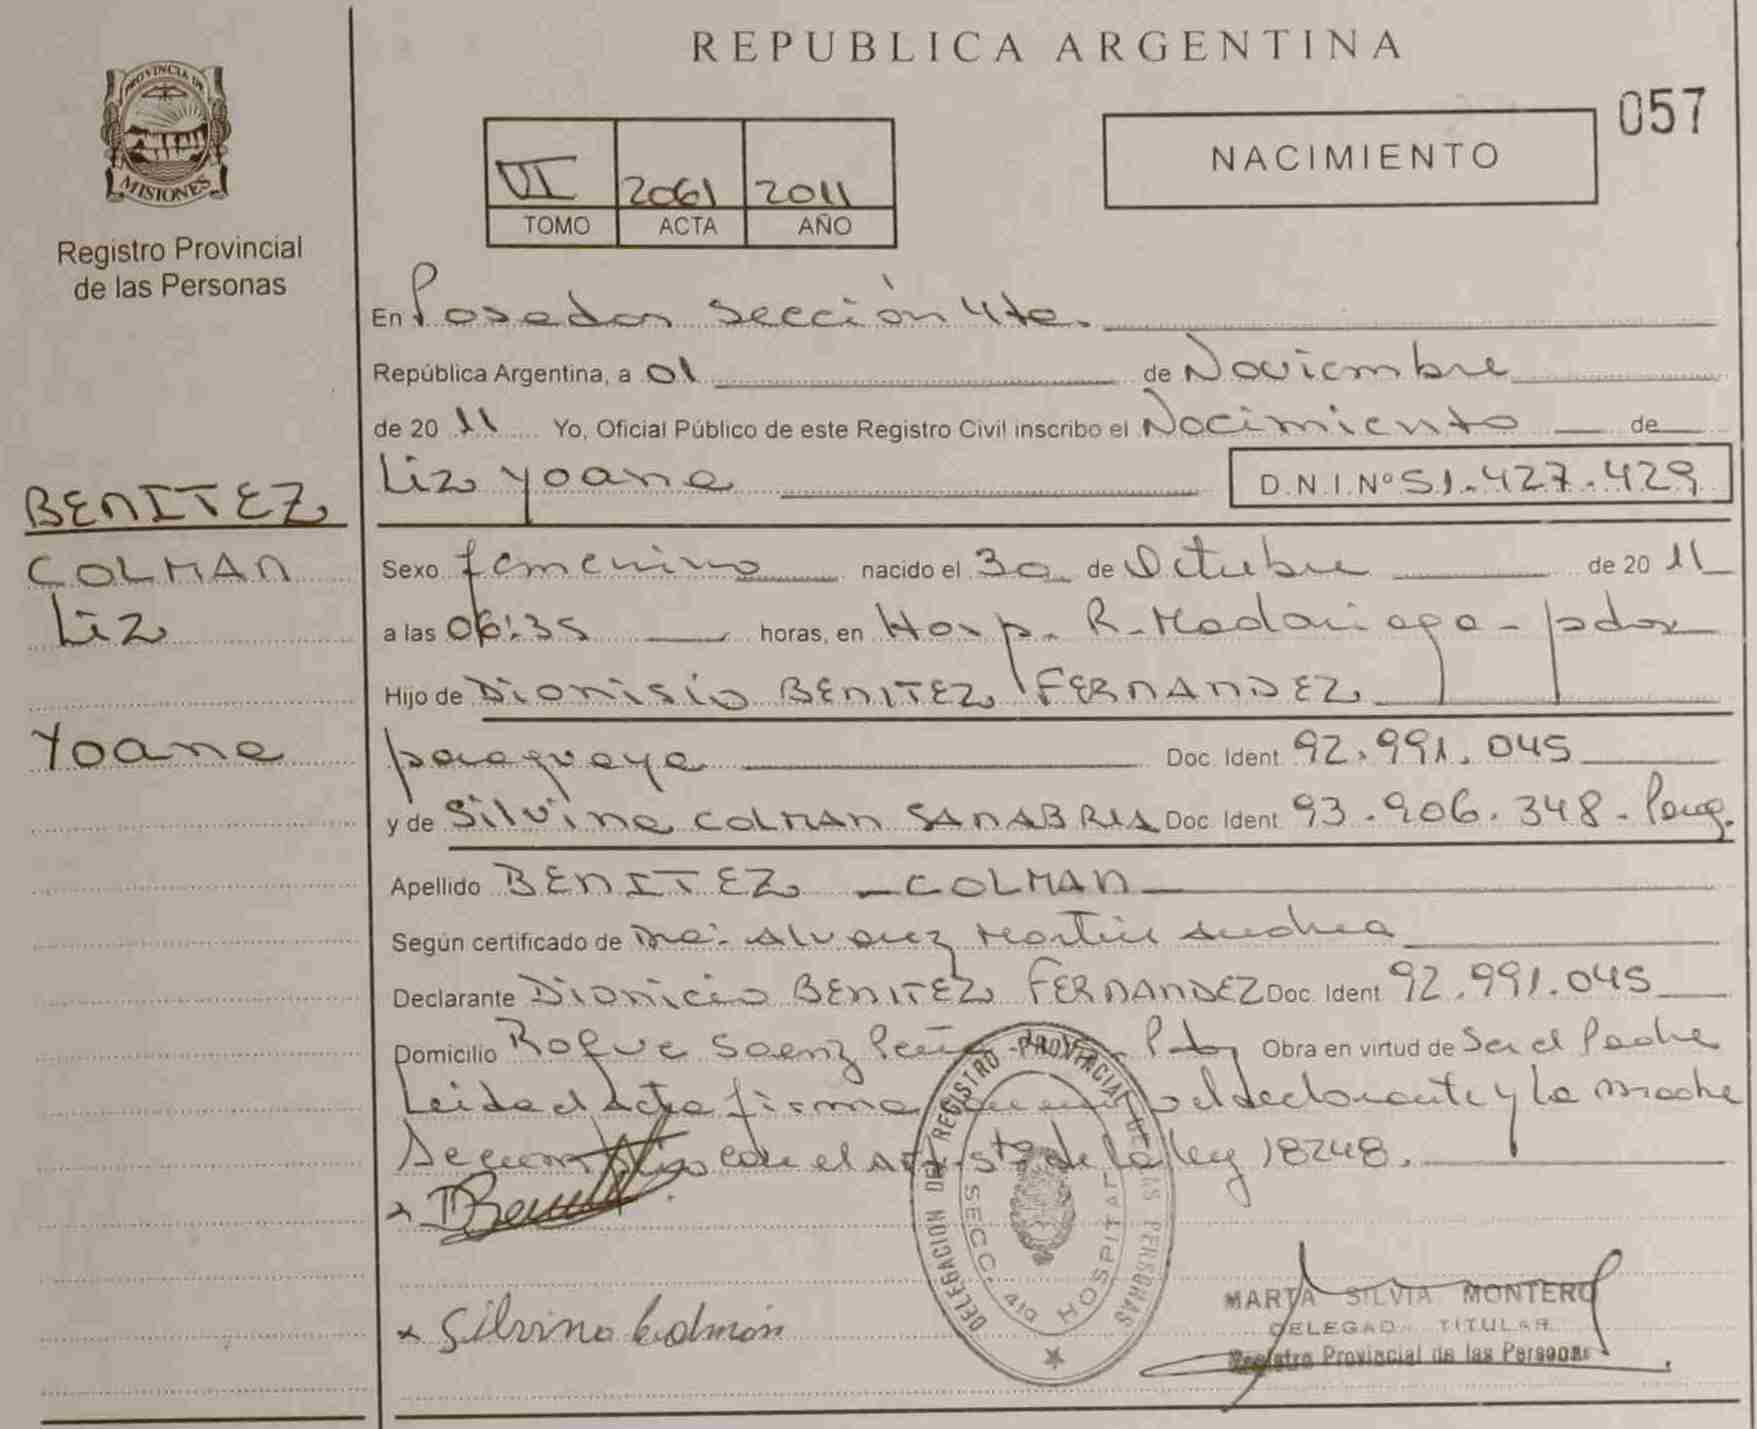 REPUBLICA ARGENTINA
057
PROVINCIA DE MISIONES
Registro Provincial
de las Personas
VI 2061 2011
TOMO ACTA AÑO
NACIMIENTO
En Posadas sección 4ta.
República Argentina, a 01 de Noviembre
de 20 11 Yo, Oficial Público de este Registro Civil inscribo el Nacimiento de
Liz Yoana D.N.I. Nº 51.427.429
BENITEZ
COLMAN
Liz
Yoana
Sexo femenino nacido el 30 de Octubre de 20 11
a las 06:35 horas, en Hosp. R. Madariaga - pdas
Hijo de Dionisio BENITEZ FERNANDEZ
paraguaya Doc. Ident 92.991.045
y de Silvina COLMAN SANABRIA Doc. Ident 93.906.348 -
Apellido BENITEZ - COLMAN
Según certificado de Alvarez
Declarante Dionicio BENITEZ FERNANDEZ Doc. Ident 92.991.045
Domicilio Roque Saenz Peña Obra en virtud de Ser el Padre
Leida el Acta firma el declarante y la Madre
con el de la ley 18248.
Silvina Colmán
DELEGACION DEL REGISTRO PROVINCIAL DE LAS PERSONAS
SECC. 4ta HOSPITAL
MARTA SILVIA MONTERO
DELEGADA TITULAR
Registro Provincial de las Personas